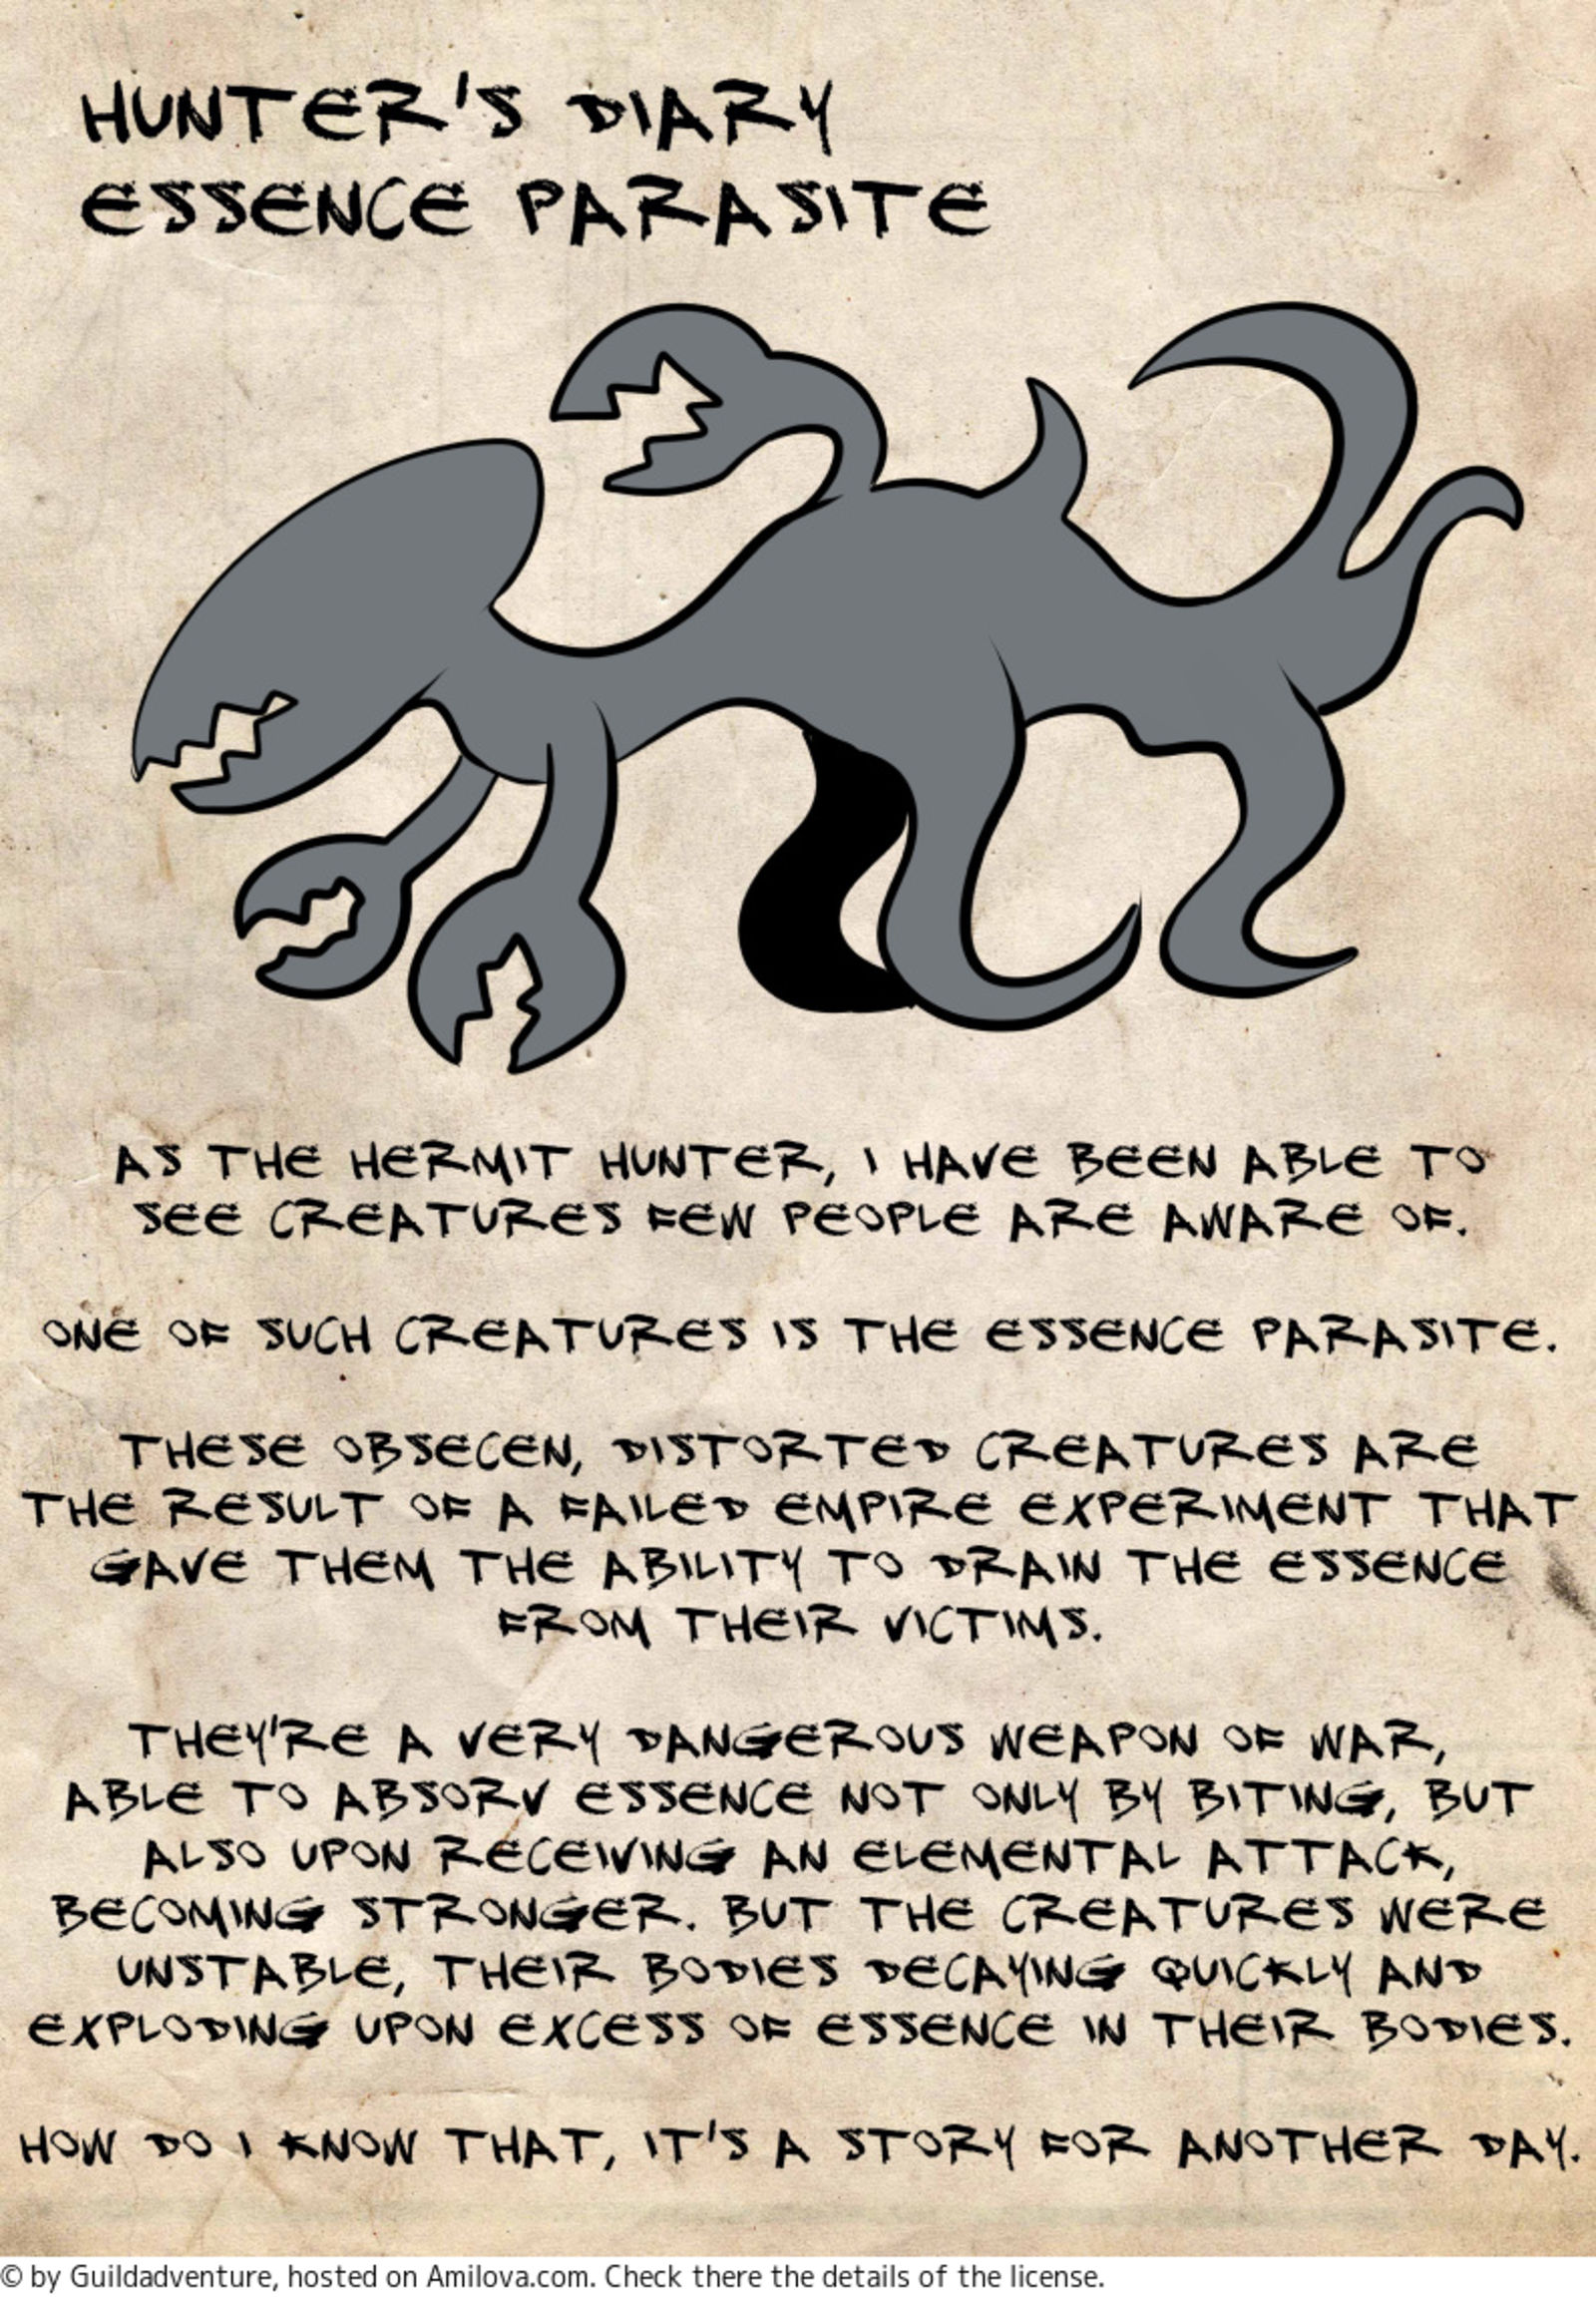 HUNTER'S DIARY
ESSENCE PARASITE
AS THE HERMIT HUNTER, I HAVE BEEN ABLE TO
SEE CREATURES FEW PEOPLE ARE AWARE OF.
ONE OF SUCH CREATURES IS THE ESSENCE PARASITE.
THESE OBSECEN, DISTORTED CREATURES ARE
THE RESULT OF A FAILED EMPIRE EXPERIMENT THAT
GAVE THEM THE ABILITY TO DRAIN THE ESSENCE
FROM THEIR VICTIMS.
THEY'RE A VERY DANGEROUS WEAPON OF WAR,
ABLE TO ABSORV ESSENCE NOT ONLY BY BITING, BUT
ALSO UPON RECEIVING AN ELEMENTAL ATTACK,
BECOMING STRONGER. BUT THE CREATURES WERE
UNSTABLE, THEIR BODIES DECAYING QUICKLY AND
EXPLODING UPON EXCESS OF ESSENCE IN THEIR BODIES.
HOW DO I KNOW THAT, IT'S A STORY FOR ANOTHER DAY.
© by Guildadventure, hosted on Amilova.com. Check there the details of the license.